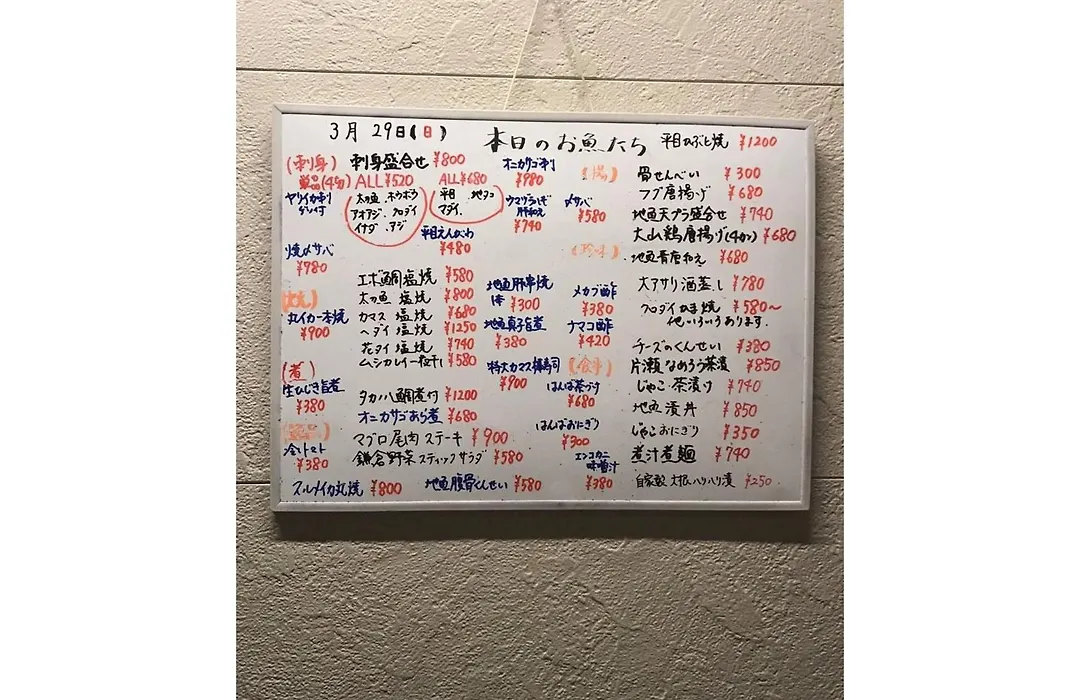 3月 29日(日)
本日のお魚たち
平目かぶと焼 ¥1200
(刺身) 刺身盛合せ ¥800
単品(4切) ALL ¥520
太刀魚、ホウボウ
アオアジ、クロダイ
イナダ、アジ
ALL ¥680
平目 地ダコ
マダイ、
ヤリイカ刺
焼〆サバ
¥780
平目えんがわ
¥480
オニカサゴ刺
¥980
ウマヅラハギ
肝和え
¥740
〆サバ
¥580
エボ鯛塩焼 ¥580
太刀魚 塩焼 ¥800
カマス 塩焼 ¥680
ヘダイ 塩焼 ¥1250
花ダイ 塩焼 ¥740
ムシカレイ一夜干し ¥580
丸イカ一本焼
¥900
地魚肝串焼
1本 ¥300
地魚真子旨煮
¥380
特大カマス棒寿司
¥900
(煮)
生ひじき旨煮
¥380
タカノハ鯛煮付 ¥1200
オニカサゴあら煮 ¥680
トマト
¥380
マグロ尾肉ステーキ ¥900
鎌倉野菜スティックサラダ ¥580
スルメイカ丸焼 ¥800
地魚腹骨くんせい ¥580
(揚)
骨せんべい ¥300
フグ唐揚げ ¥680
地魚天プラ盛合せ ¥740
大山鶏唐揚げ(4カン) ¥680
(珍味)
地魚唐和え ¥680
メカブ酢
¥380
ナマコ酢
¥420
大アサリ酒蒸し ¥780
クロダイかま焼 ¥580~
他いろいろあります.
チーズのくんせい ¥380
(食事)
片瀬なめろう茶漬 ¥850
はんば茶づけ
¥680
じゃこ茶漬け ¥740
地魚漬丼 ¥850
はんばおにぎり
¥300
じゃこおにぎり ¥350
味噌汁
¥380
煮汁煮麺 ¥740
自家製 大根ハリハリ漬 ¥250